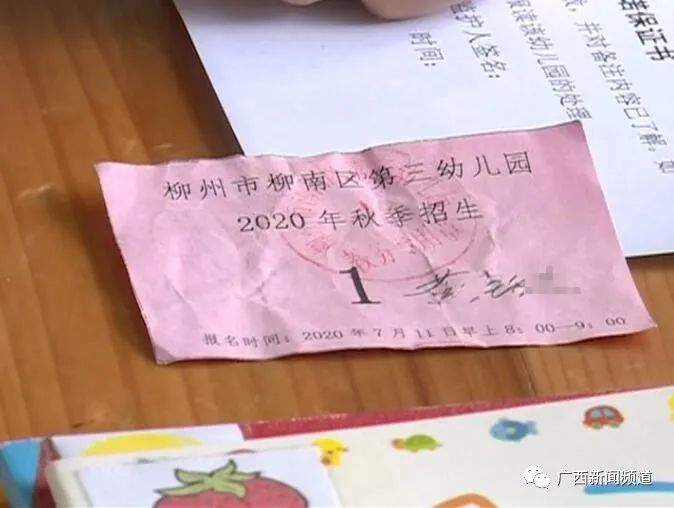 柳州市柳南区第三幼儿园
2020 年秋季招生
1
报名时间：2020 年 7 月 11 日早上 8：00—9：00
保证书
并对备注内容已了解。如
阅读该幼儿园的处理
监护人签名：
时间：
广西新闻频道